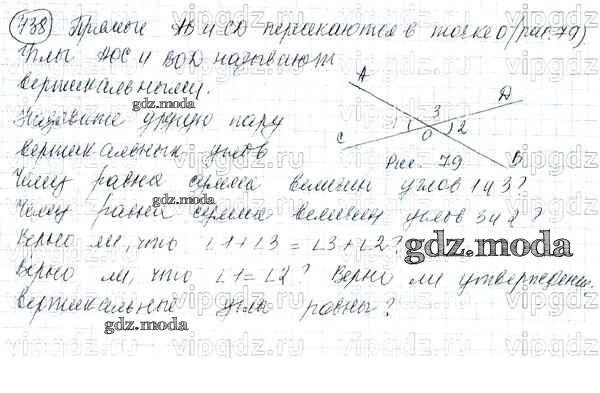 738 Прямые АВ и CD пересекаются в точке О (рис. 79)
Углы АОС и BOD называют
вертикальными.
gdz.moscow
Назовите другую пару
вертикальных углов
A
D
3
1
2
O
C
B
Рис. 79
Чему равна сумма величин углов 1 и 3?
gdz.moscow
Чему равна сумма величин углов 3 и 2?
Верно ли, что ∠1+∠3=∠3+∠2?
gdz.moscow
Верно ли, что ∠1=∠2? Верно ли утверждение:
вертикальные углы равны?
gdz.moscow
vipgdz.ru